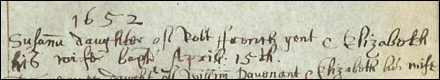 1652
Susanna daughter of Robt ffrenth gent & Elizabeth
his wife bapt Aprill 15th.
daughter of William Davenant & Elizabeth his wife